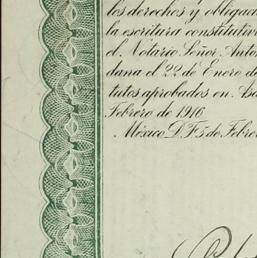 los derechos y obligac
la escritura constitutiv
el Notario Señor Anto
dana el 22 de Enero de
tutos aprobados en Asa
Febrero de 1916.
México D. F. 5 de Febre